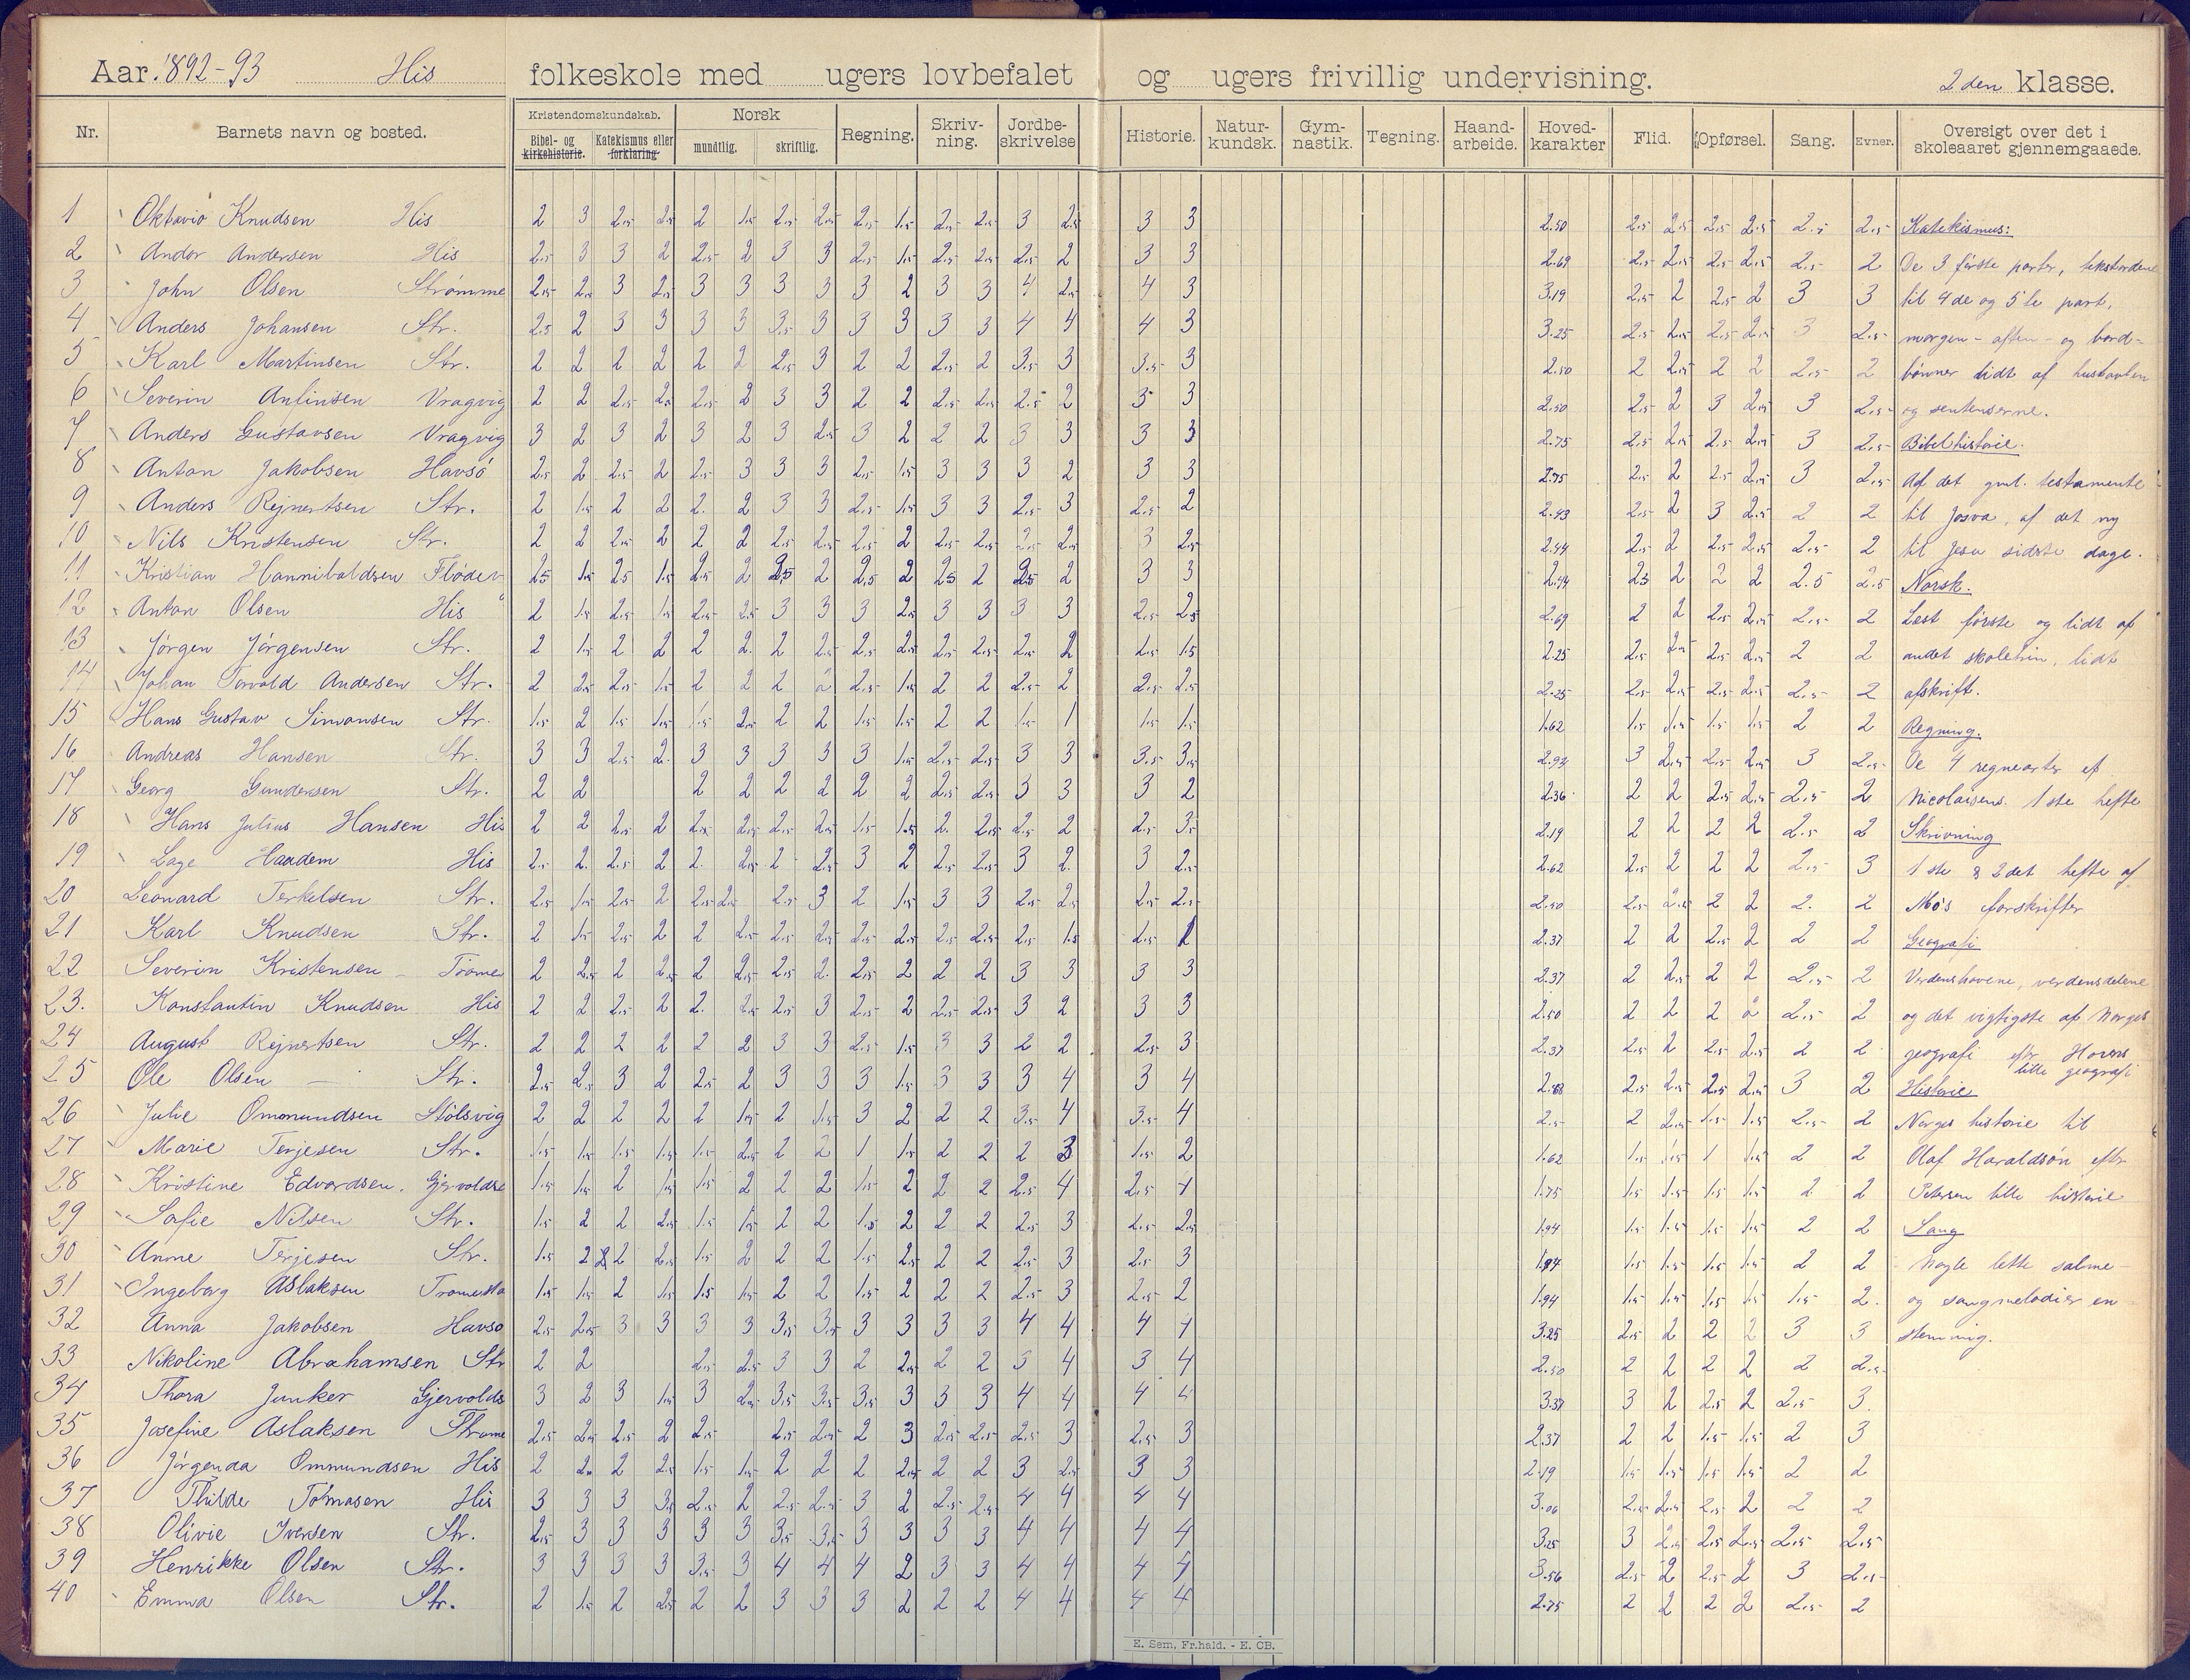 Aar 1892-93 His folkeskole med ugers lovbefalet og ugers frivillig undervisning. 2den klasse.
Nr. Barnets navn og bosted. Kristendomskundskab. Norsk Regning. Skriv- ning. Jordbe- skrivelse Historie. Natur- kundsk. Gym- nastik. Tegning. Haand- arbeide. Hoved- karakter Flid. Opførsel. Sang. Evner. Oversigt over det i skoleaaret gjennemgaaede.
Bibel- og kirkehistorie. Katekismus eller forklaring mundtlig. skriftlig.
1 Oktavio Knudsen His 2 3 2.5 2.5 2 1.5 2.5 2.5 2.5 1.5 2.5 2.5 3 2.5 3 3 2.50 2.5 2.5 2.5 2.5 2.5 2.5 Katekismus:
2 Andor Andersen His 2.5 3 3 2 2.5 2 3 3 2.5 1.5 2.5 2.5 2.5 2 3 3 2.69 2.5 2.5 2.5 2.5 2.5 2 De 3 første parter, tekstordene
3 John Olsen Strømme 2.5 2.5 3 2.5 3 3 3 3 3 2 3 3 4 2.5 4 3 3.19 2.5 2 2.5 2 3 3 til 4de og 5te part,
4 Anders Johansen Str. 2.5 2 3 3 3 3 3.5 3 3 3 3 3 4 4 4 3 3.25 2.5 2.5 2.5 2.5 3 2.5 morgen- aften- og bord-
5 Karl Martinsen Str. 2 2 2 2 2 2 2.5 3 2 2 2.5 2 3.5 3 3.5 3 2.50 2 2.5 2 2 2.5 2 bønner lidt af hustavlen
6 Severin Antinsen Vragvig 2 2 2.5 2.5 2.5 2 3 3 2 2 2.5 2.5 2.5 2 3 3 2.50 2.5 2 3 2.5 3 2.5 og sentenserne.
7 Anders Gustavsen Vragvig 3 2 3 2 3 2 3 2.5 3 2 2 2 3 3 3 3 2.75 2.5 2.5 2.5 2.5 3 2.5 Bibelhistorie.
8 Anton Jakobsen Havsø 2.5 2 2.5 2 2.5 3 3 3 2.5 1.5 3 3 3 2 3 3 2.75 2.5 2 2.5 2.5 3 2.5 Af det gml. testamente
9 Anders Rejnertsen Str. 2 1.5 2 2 2. 2 3 3 2.5 1.5 3 3 2.5 3 2.5 2 2.43 2.5 2 3 2.5 2 2 til Josva, af det ny
10 Nils Kristensen Str. 2 2 2.5 2 2 2 2.5 2.5 2.5 2 2.5 2.5 2.5 2.5 3 2.5 2.44 2.5 2 2.5 2.5 2.5 2 til Jesu sidste dage.
11 Kristian Hannibaldsen Fløder 2.5 1.5 2.5 1.5 2.5 2 2.5 2 2.5 2 2.5 2 2.5 2 3 3 2.44 2.5 2 2 2 2.5 2.5 Norsk.
12 Anton Olsen His 2 1.5 2.5 1.5 2.5 2.5 3 3 3 2.5 3 3 3 3 2.5 2.5 2.69 2 2 2.5 2.5 2.5 2 Læst første og lidt af
13 Jørgen Jørgensen Str. 2 1.5 2 2 2 2. 2 2.5 2.5 2.5 2.5 2.5 2.5 2 1.5 1.5 2.25 2.5 2.5 2.5 2.5 2 2 andet skoletrin, lidt
14 Johan Torvald Andersen Str. 2 2.5 2.5 1.5 2 2 2 2 2.5 1.5 2 2 2.5 2 2.5 2.5 2.25 2.5 2.5 2.5 2.5 2.5 2 afskrift.
15 Hans Gustav Simonsen Str. 1.5 2 1.5 1.5 1.5 2.5 2 2 1.5 1.5 2 2 1.5 1 1.5 1.5 1.62 1.5 1.5 1.5 1.5 2 2 Regning.
16 Andreas Hansen Str. 3 3 2.5 2. 3 3 3 3 3 1.5 2.5 2.5 3 3 3.5 3.5 2.93 3 2.5 2.5 2.5 3 2.5 De 4 regnearter ef.
17 Georg Gundersen Str. 2 2 2 2 2 2 2 2 2.5 2.5 3 3 3 2 2.36 2 2 2.5 2.5 2.5 2 Nicolaisens 1ste hefte
18 Hans Julius Hansen His 2 2 2.5 2 2.5 2.5 2.5 2.5 1.5 1.5 2. 2.5 2.5 2 2.5 3.5 2.19 2 2 2 2 2.5 2 Skrivning
19 Lage Haadem His 2.5 2. 2.5 2 2. 2.5 2 2.5 3 2 2.5 2.5 3 2. 3 2.5 2.62 2.5 2 2 2 2.5 3 1ste & 2det hefte af
20 Leonard Terkelsen Str. 2.5 1.5 2.5 2 2.5 2.5 2.5 3 2 1.5 3 3 2.5 2.5 2.5 2.5 2.50 2.5 2.5 2 2 2. 2 Mø's forskrifter
21 Karl Knudsen Str. 2 1.5 2.5 2 2 2.5 2.5 2.5 2.5 2.5 2.5 2.5 2.5 1.5 2.5 2 2.37 2 2 2.5 2 2 2 Geografi
22 Severin Kristensen - Trome 2 2.5 2 2.5 2 2.5 2.5 2. 2.5 2 2 2 3 3 3 3 2.37 2 2.5 2 2 2.5 2 Verdenshavene, verdensdelene
23. Konstantin Knudsen His 2 2 2.5 2 2. 2.5 2.5 3 2.5 2 2.5 2.5 3 2 3 3 2.50 2 2 2 2 2.5 2 og det vigtigste af Norges
24 August Rejnertsen Str. 2 2 2 2 2 2 3 3 2.5 1.5 3 3 2 2 2.5 3 2.37 2.5 2 2.5 2.5 2 2 geografi efter Horns
25 Ole Olsen - Str. 2.5 2.5 3 2 2.5 2 3 3 3 1.5 3 3 3 4 3 4 2.88 2.5 2.5 2.5 2.5 3 2 Historie lille geografi
26 Julie Ommundsen Stølsvig 2 2 2 2 2 1.5 2 1.5 3 2 2 2 3.5 4 3.5 4 2.5 2 2.5 1.5 1.5 2.5 2 Norges historie til
27 Marie Terjesen Str. 1.5 1.5 1.5 1.5 1.5 2.5 2 2 1 1.5 2 2 2 3 1.5 2 1.62 1.5 1.5 1 1.5 2 2 Olaf Haraldsøn efter
28 Kristine Edvardsen. Gjervoldse 1.5 1.5 2 1.5 1.5 2 2 2 1.5 2 2 2 2.5 4 2.5 4 1.75 1.5 1.5 1.5 1.5 2 2 Petersen lille historie
29 Sofie Nilsen Str. 1.5 2 2 2.5 1.5 1.5 2 2 1.5 2 2 2 2.5 3 2.5 2.5 1.94 1.5 1.5 1.5 1.5 2 2 Sang
30 Anne Terjesen Str. 1.5 2 2 2.5 1.5 2 2 2 1.5 2.5 2 2 2.5 3 2.5 3 1.94 1.5 1.5 1.5 1.5 2 2 Nogle lette salme-
31 Ingeborg Aslaksen Tromesta 1.5 1.5 2 1.5 1.5 1.5 2 2 1.5 2 2 2 2.5 3 2.5 2 1.94 1.5 1.5 1.5 1.5 1.5 2. og sangmelodier en
32 Anna Jakobsen Havsø 2.5 2.5 3 3 3 3 3.5 3.5 3 3 3 3 4 4 4 4 3.25 2.5 2 2 2 3 3 stemmig.
33 Nikoline Abrahamsen Str 2 2 2.5 2.5 3 3 2 2.5 2 2 3 4 3 4 2.50 2 2 2 2 2 2.5
34 Thora Junker Gjervolds 3 2 3 1.5 3 2.5 3.5 3.5 3.5 3 3 3 4 4 4 4 3.37 3 2 2.5 2 2.5 3.
35 Josefine Aslaksen Strøme 2.5 2.5 2.5 2 2.5 2.5 2.5 2 3 2.5 2.5 2.5 3 2.5 3 2.37 2 2 1.5 1.5 2 3
36 Jørgenda Ommundsen His 2 2.5 2 2.5 1.5 1.5 2 2 2 2.5 2 2 3 2.5 3 3 2.19 1.5 1.5 1.5 1.5 2 2
37 Thilde Tomasen His 3 3 3 3.5 2.5 2 2.5 2.5 3 2 2.5 2.5 4 4 4 4 3.06 2.5 2.5 2.5 2 2 2
38 Olivie Iversen Str. 2.5 3 3 3 3 3 3.5 3.5 3 3 3 3 4 4 4 4 3.25 3 2.5 2.5 2.5 2.5 2.5
39 Henrikke Olsen Str. 3 3 3 3 3.5 3 4 4 4 2 3 3 4 4 4 4 3.56 2.5 2 2.5 2 3 2.5
40 Emma Olsen Str. 2 1.5 2 2.5 2 2 3 3 3 2 2 2 4 4 4 4 2.75 2 2 2 2 2.5 2
E. Sem, Fr.hald. - E. CB.